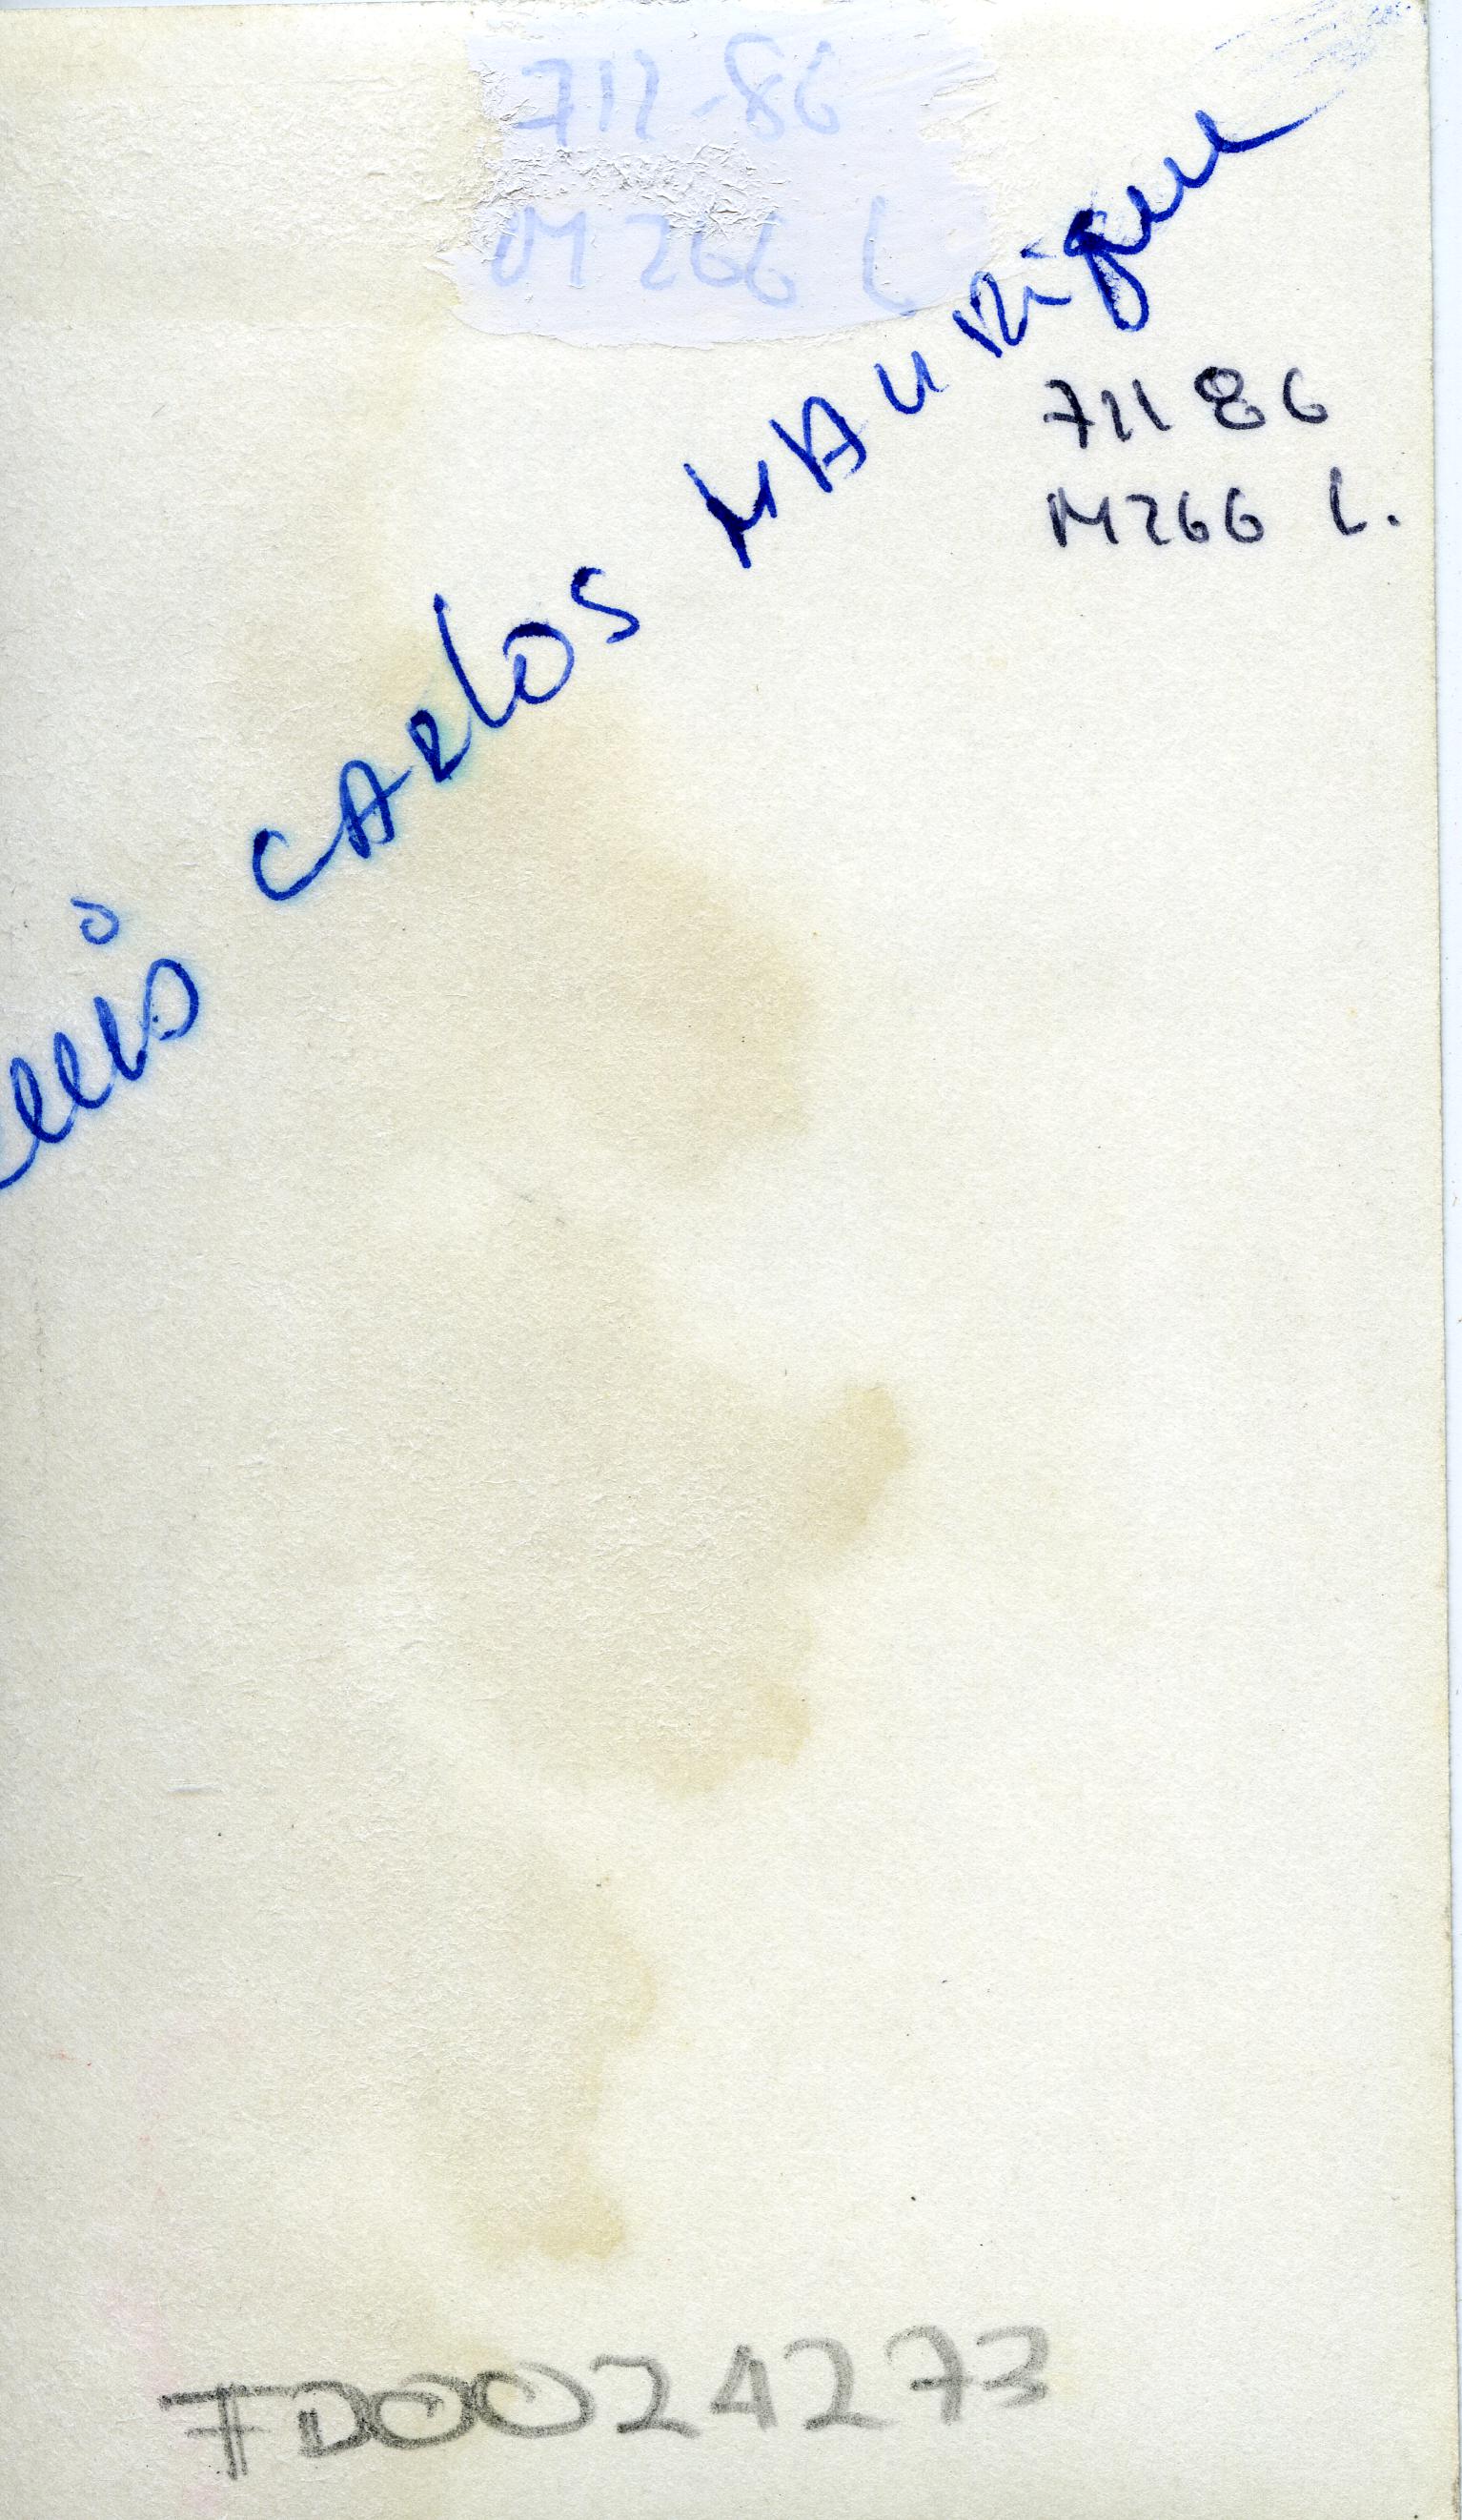 711-86
M266 L
Luis CARlos MAURique
711 86
M266 L.
FD0024273